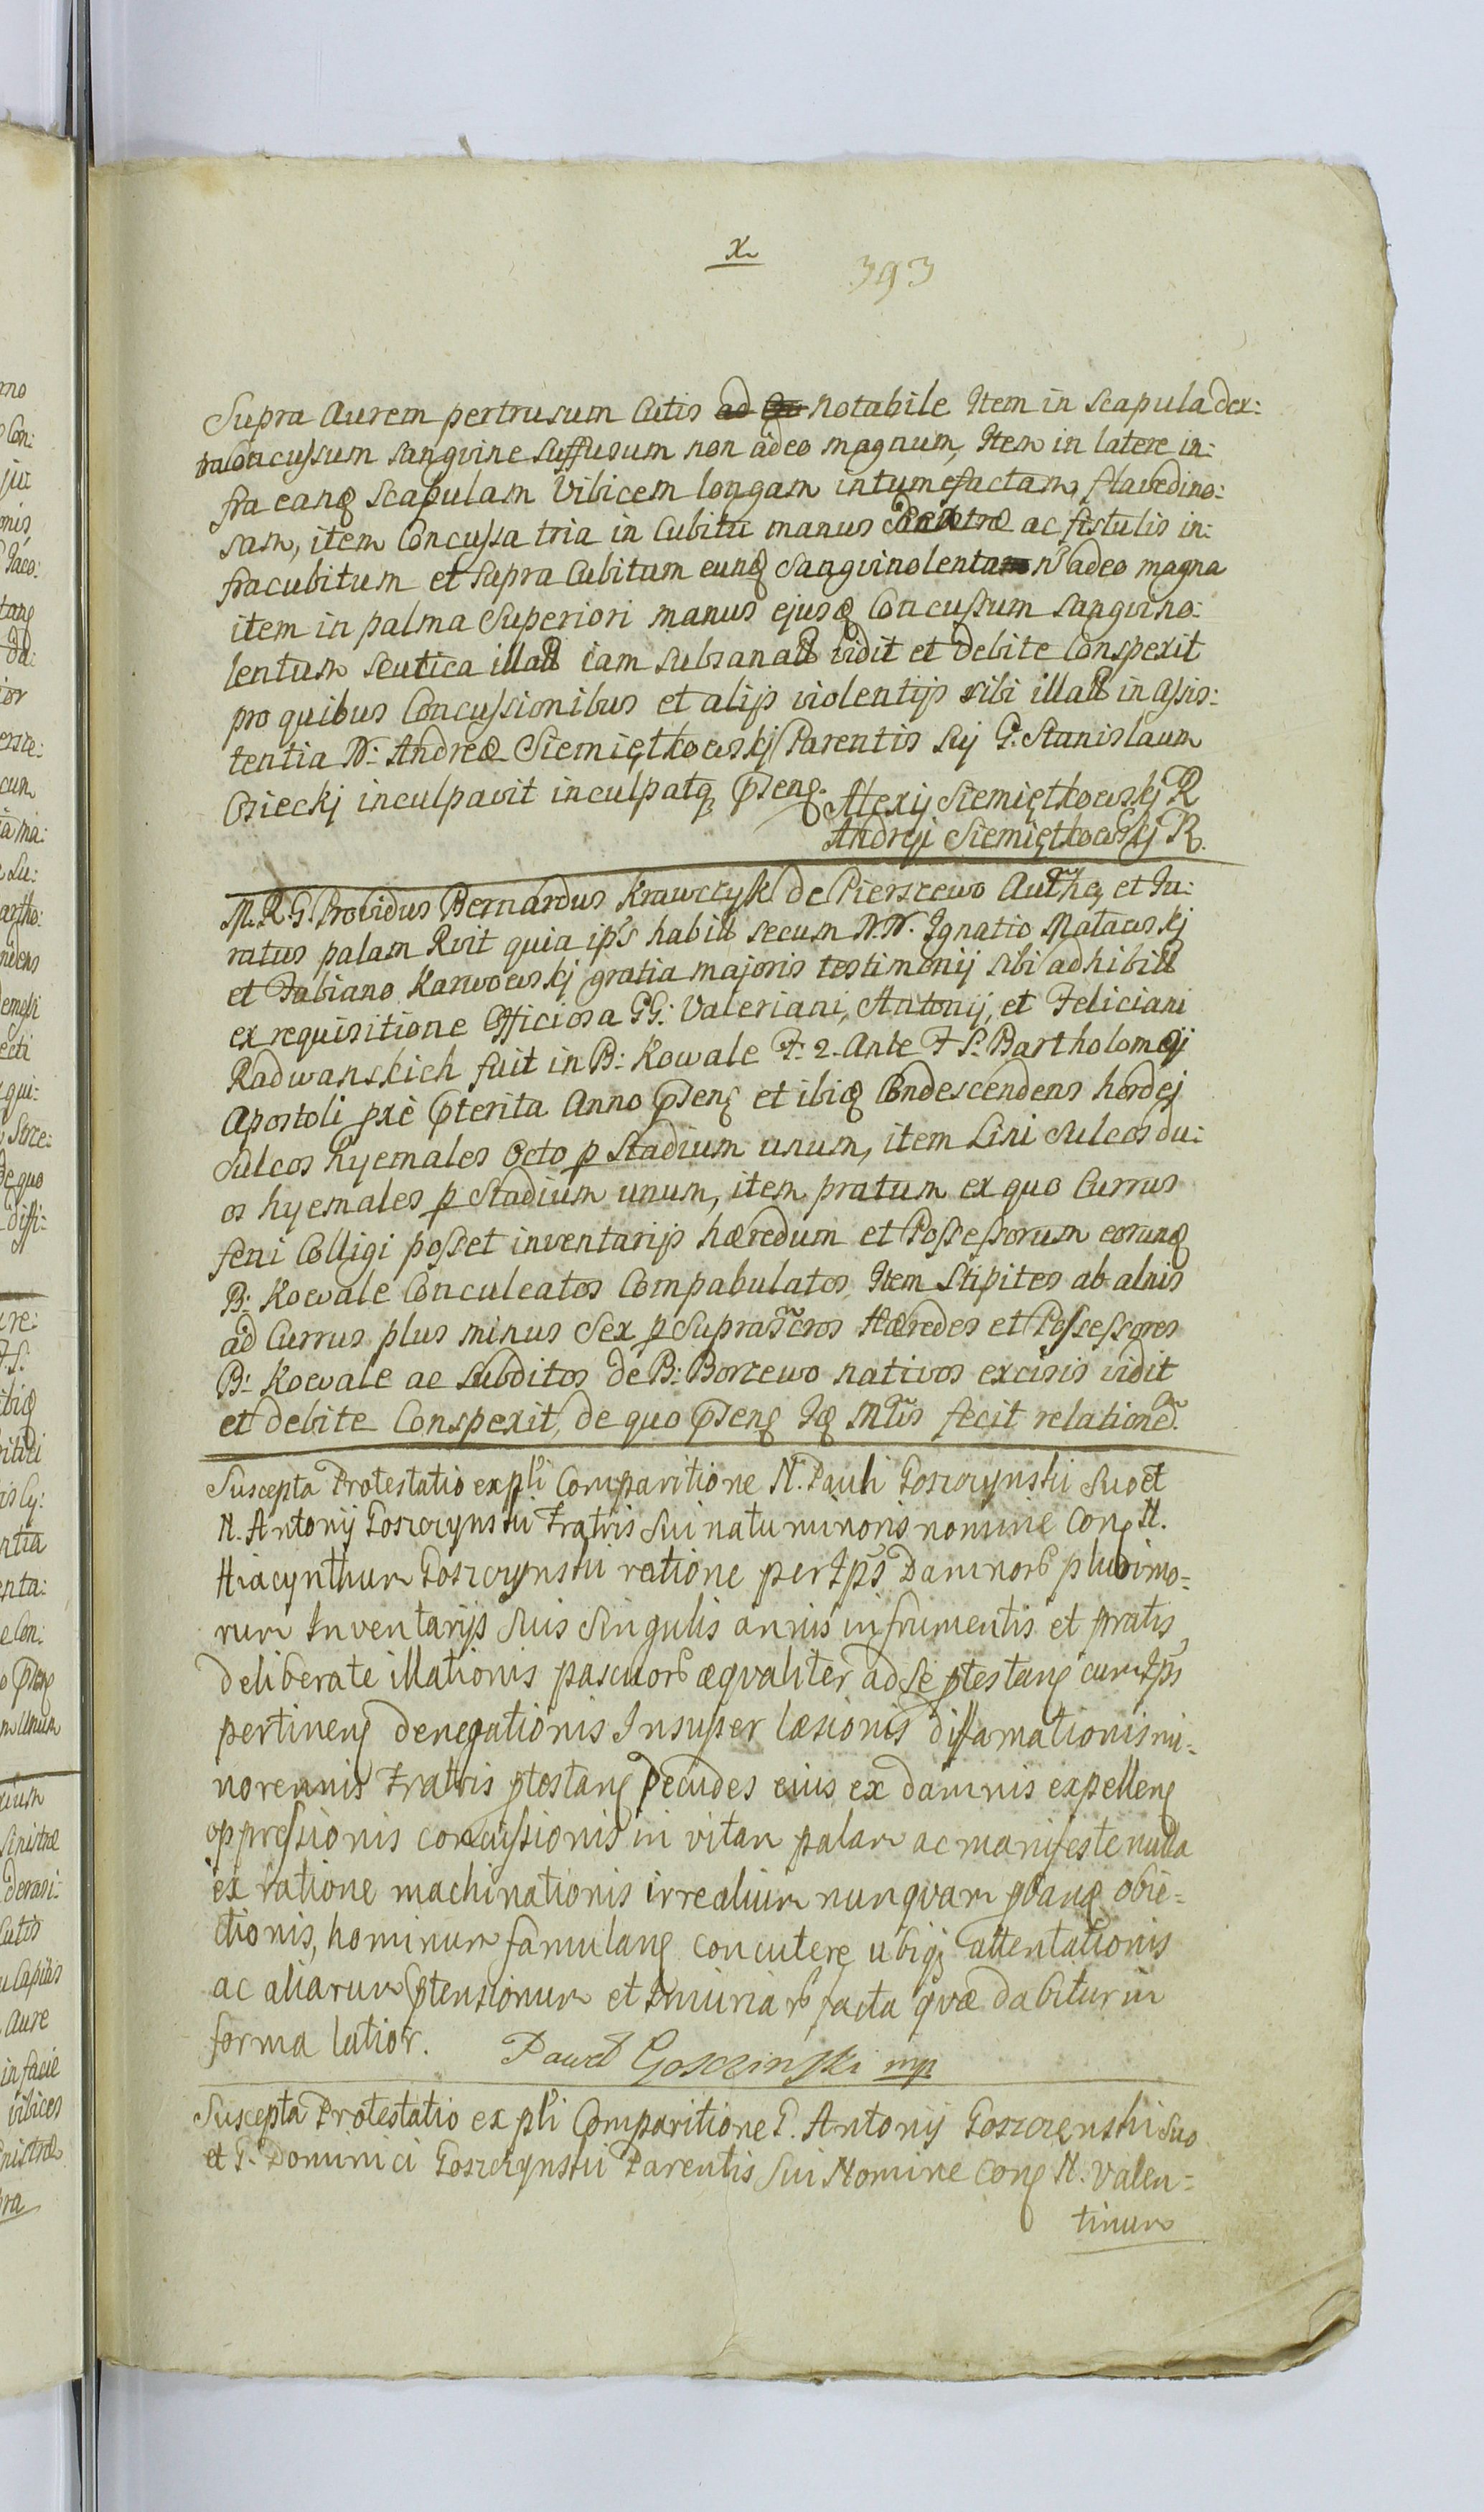 x
393
Supra Aurem pertrusum Cutis ad notabile Item in Scapula dex:
concussum sangvine suffusum non adeo magnum, Item in latere in:
fra eanq scapulam Vibicem longam intumefactam, flavedino:
sam, item Concussa tria in Cubitu manus ac fistulis in:
fracubitum et supra Cubitum eunq Sangvinolenta n adeo magna
item in palma Superiori manus ejusq Concussum sangvino:
lentum scutica illat iam subsanat vidit et debite Conspexit
pro quibus Concussionibus et alijs violentijs sibi illat in Assis:
tentia N: Andreæ Siemiętkowskj Parentis sui G. Stanislaum
Osieckj inculpavit inculpatq pseng.
Alexij Siemiętkowskj R
Andreji Siemiętkowskj R.
M. R. G. Providus Bernardus Krawczyk de Pierszewo Authq et Iu:
ratus palam Rvit quia ips habitt secum N.N. Ignatio Matawskj
et Fabiano Karwowskj gratia majoris testimonij sibi adhibitt
ex requisitione Officiosa GG: Valeriani, Antonij, et Feliciani
Radwanskich fuit in B: Kowale F. 2. Ante F S. Bartholomæij
Apostoli pxè pterita Anno pseng et ibiq Condescendens hordej
Sulcos hyemales Octo p Stadium unum, item Lini Sulcos du:
os hyemales p Stadium unum, item pratum ex quo Currus
feni Colligi posset inventarijs hæredum et Possessorum eorunq
B: Kowale Conculcatos Compabulatos, Item Stipites ab alnis
ad Currus plus minus Sex p Suprascros Hæredes et Possessores
B: Kowale ac Subditos de B: Borzewo nativos excisis vidit
et debite Conspexit, de quo pseng Iq Mtis fecit relatione.
Suscepta Protestatio ex pti Comparitione N. Pauli Goszczynski Suo et
N. Antonij Goszczynski Fratris Sui natu minoris nomine Conq N.
Hiacynthum Goszczynski ratione per Ips Damnor plurimo=
rum Inventarijs Suis Singulis annis in frumentis et pratis,
deliberate illationis pascuor æqvaliter ad se ptestang cum Ips
pertineng denegationis Insuper læsionis diffamationis mi=
norennis Fratris ptestang Pecudes eius ex damnis expelleng
oppressionis concussionis in vitam palam ac manifeste nulla
ex ratione machinationis irrealium nunqvam pbang obie=
ctionis, hominum famulang concutere ubiq attentationis
ac aliarum ptensionum et Iniuriar facta qvæ dabitur in
forma latior.
Paweł Gosczinski mp
Suscepta Protestatio ex pti Comparitione G. Antonij Goszczenski Suo
et G. Dominici Goszczynski Parentis Sui Nomine Conq N. Valen=
tinum